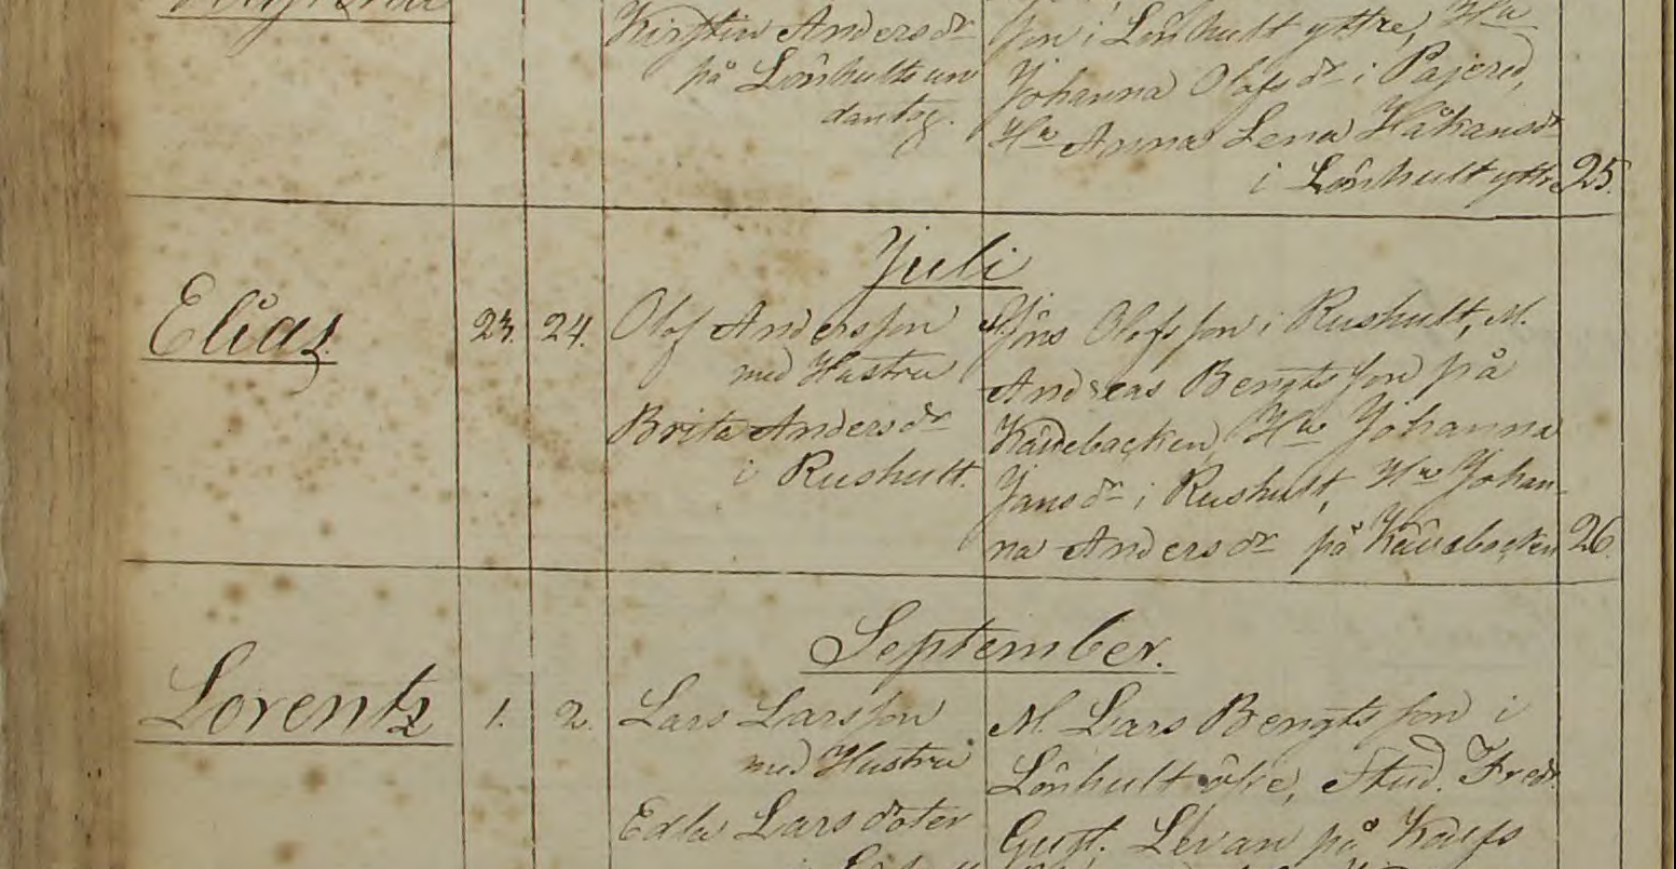 Kirstin Andersdr
på Lönhults un
dantag.
son i Lönhult yttre, Hu
Johanna Olofsdr i Pajered,
Hu Anna Lena Håkansdr
i Lönhult yttre 25.
Juli
Elias
23. 24.
Olof Andersson
med Hustru
Brita Andersdr
i Rushult.
Jöns Olofsson i Rushult, M.
Andreas Bengtsson på
Hu Johanna
Jansdr i Rushult, Hu Johan-
na Andersdr på 26.
September.
Lorentz
1. 2.
Lars Larsson
med Hustru
Edla Larsdoter
M. Lars Bengtsson i
Lönhult öfre, Stud. Fredr.
Gust. Levan på